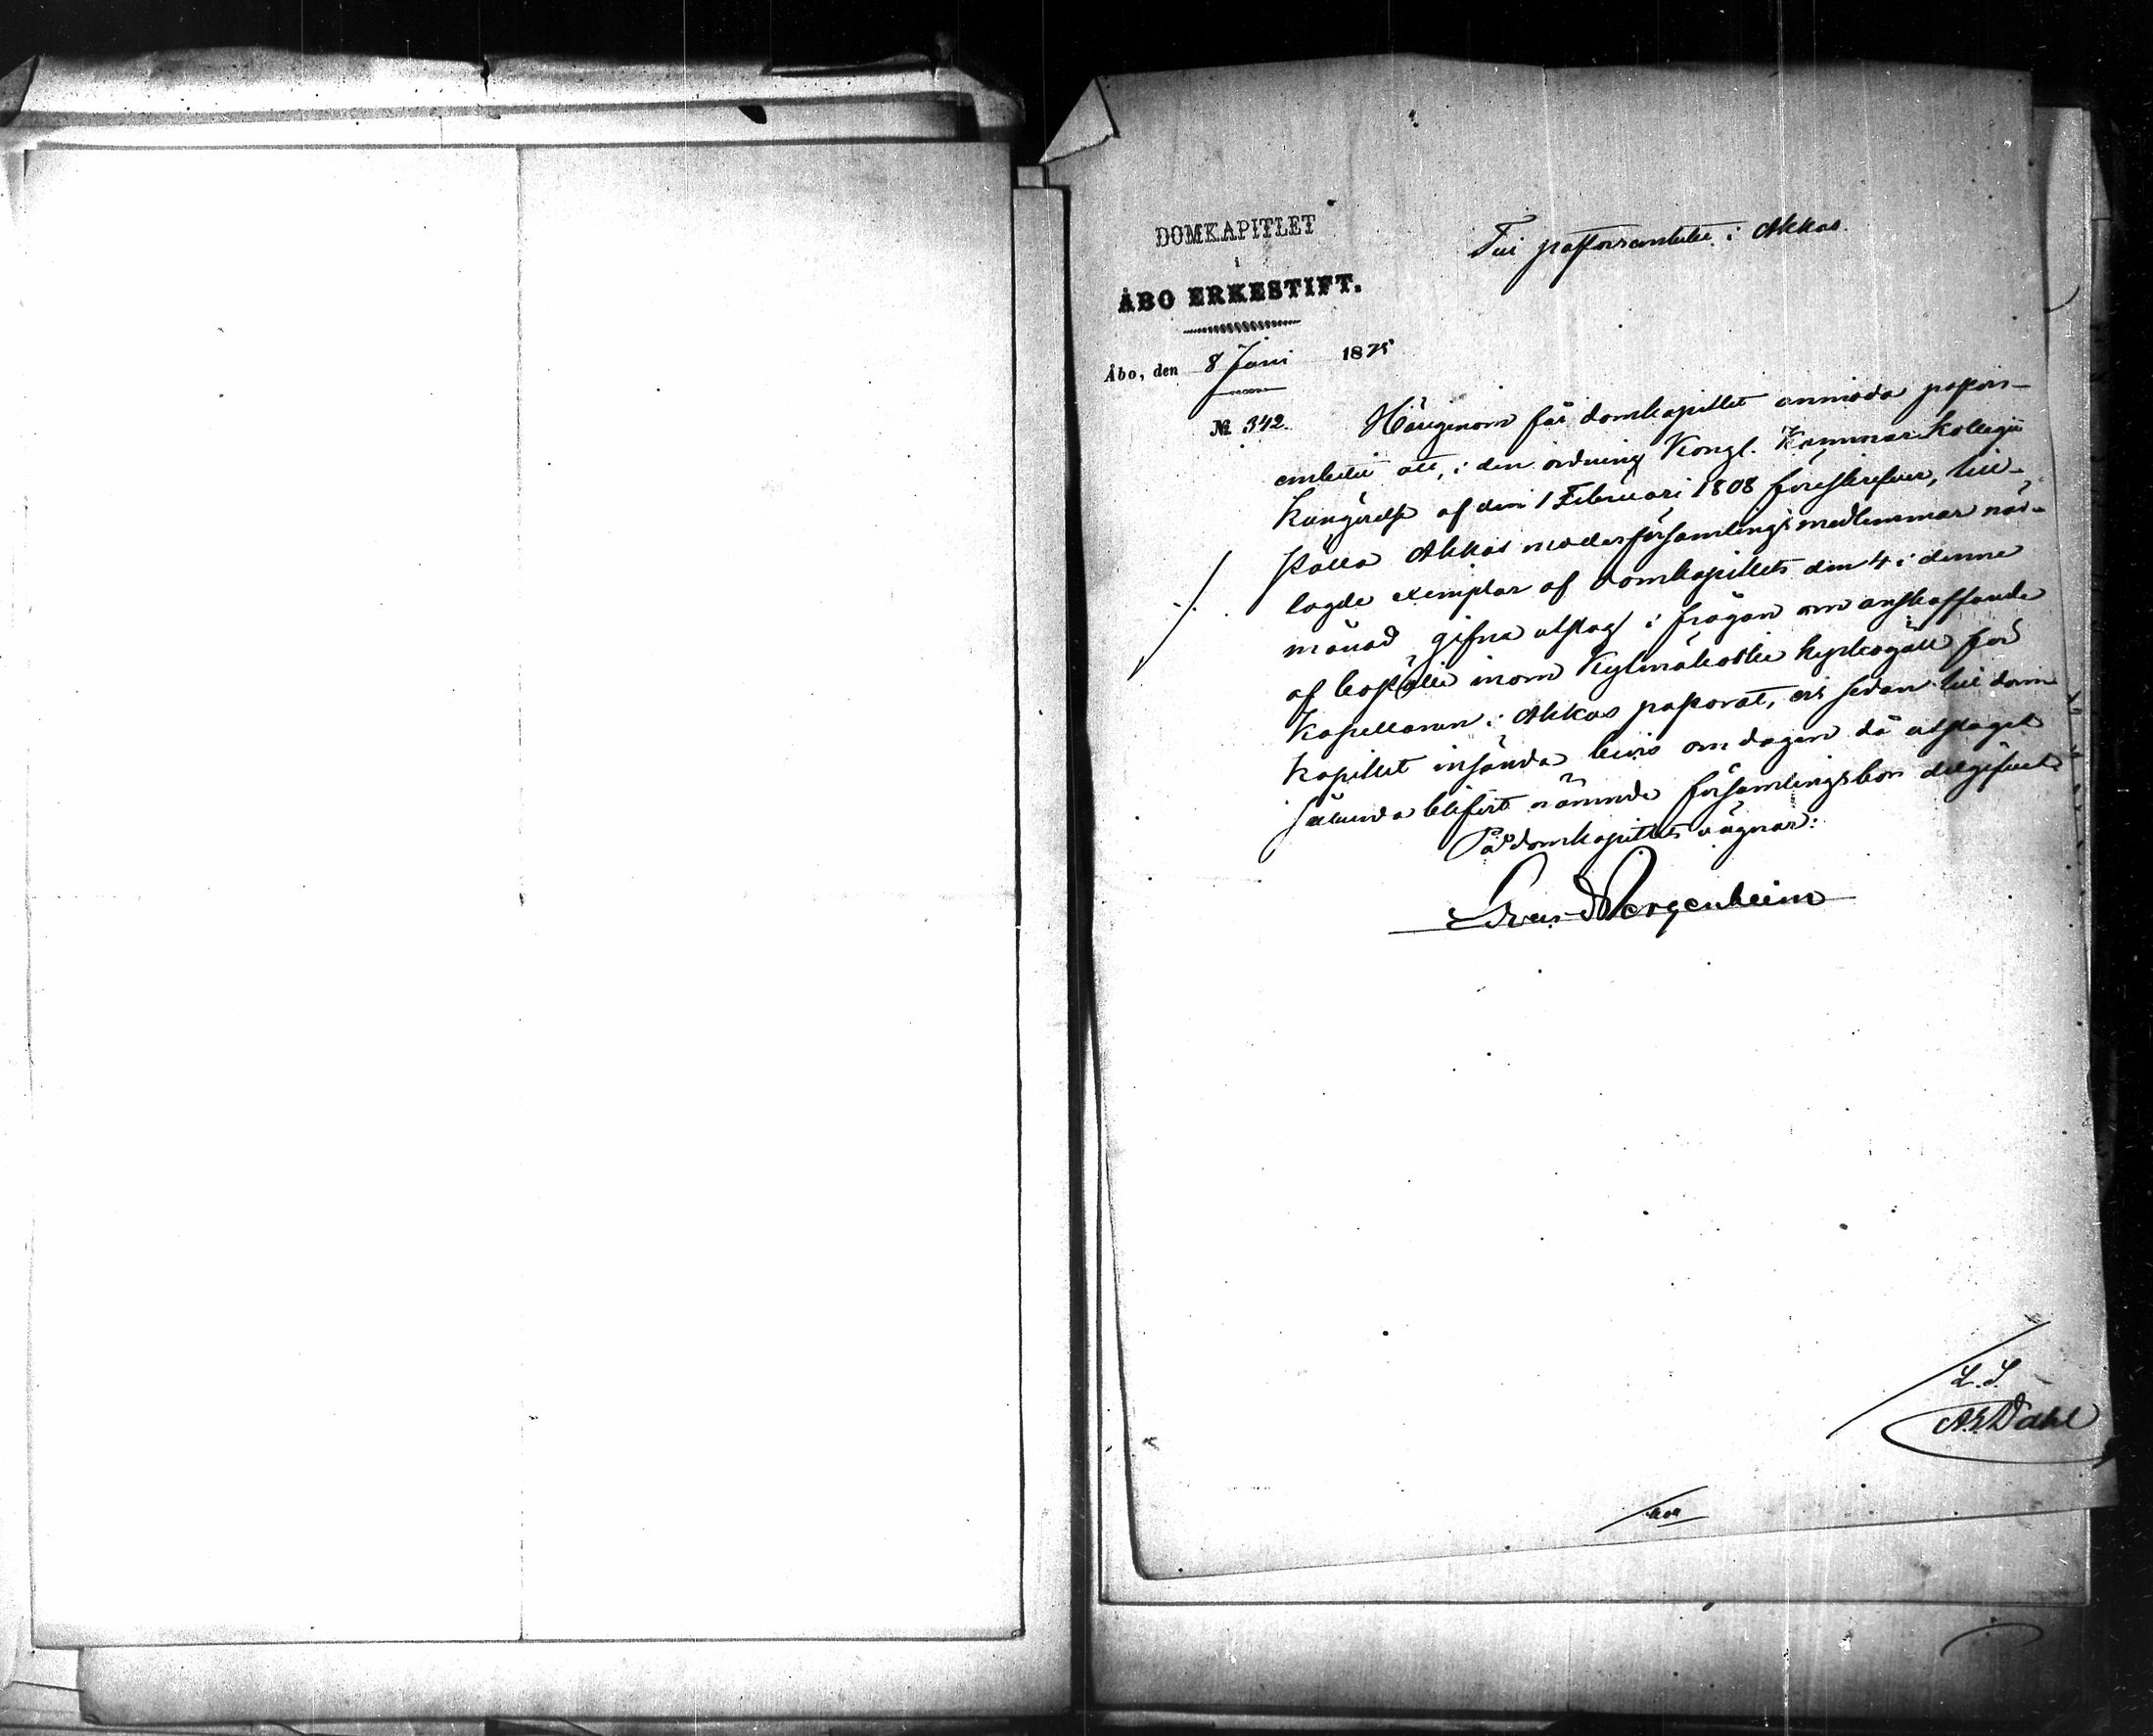 DOMKAPITLET
i
ÅBO ERKESTIFT.
Till pastorsembetet i Akkas.
Åbo, den 8 Juni 1875
№ 342.
Härigenom får domkapitlet anmoda pastors-
embetet att, i den ordning Kongl. Kammar Kollegii
Kungörelse af den 1 Februari 1808 föreskrifver, till-
ställa Akkas moderförsamlings medlemmar när-
lagde exemplar af domkapitlets den 4 i denne
månad gifna utslag i frågan om anskaffande
af boställe inom Kylmäkoski kyrkogäll för
Kapellanen i Akkas pastorat, och sedan till dom-
kapitlet insända bevis om dagen då utslaget
sålunda blifvit nämnde församlingsbor delgifvet.
På domkapitlets vägnar:
Edvard Bergenheim
L. S.
A. E. Dahl